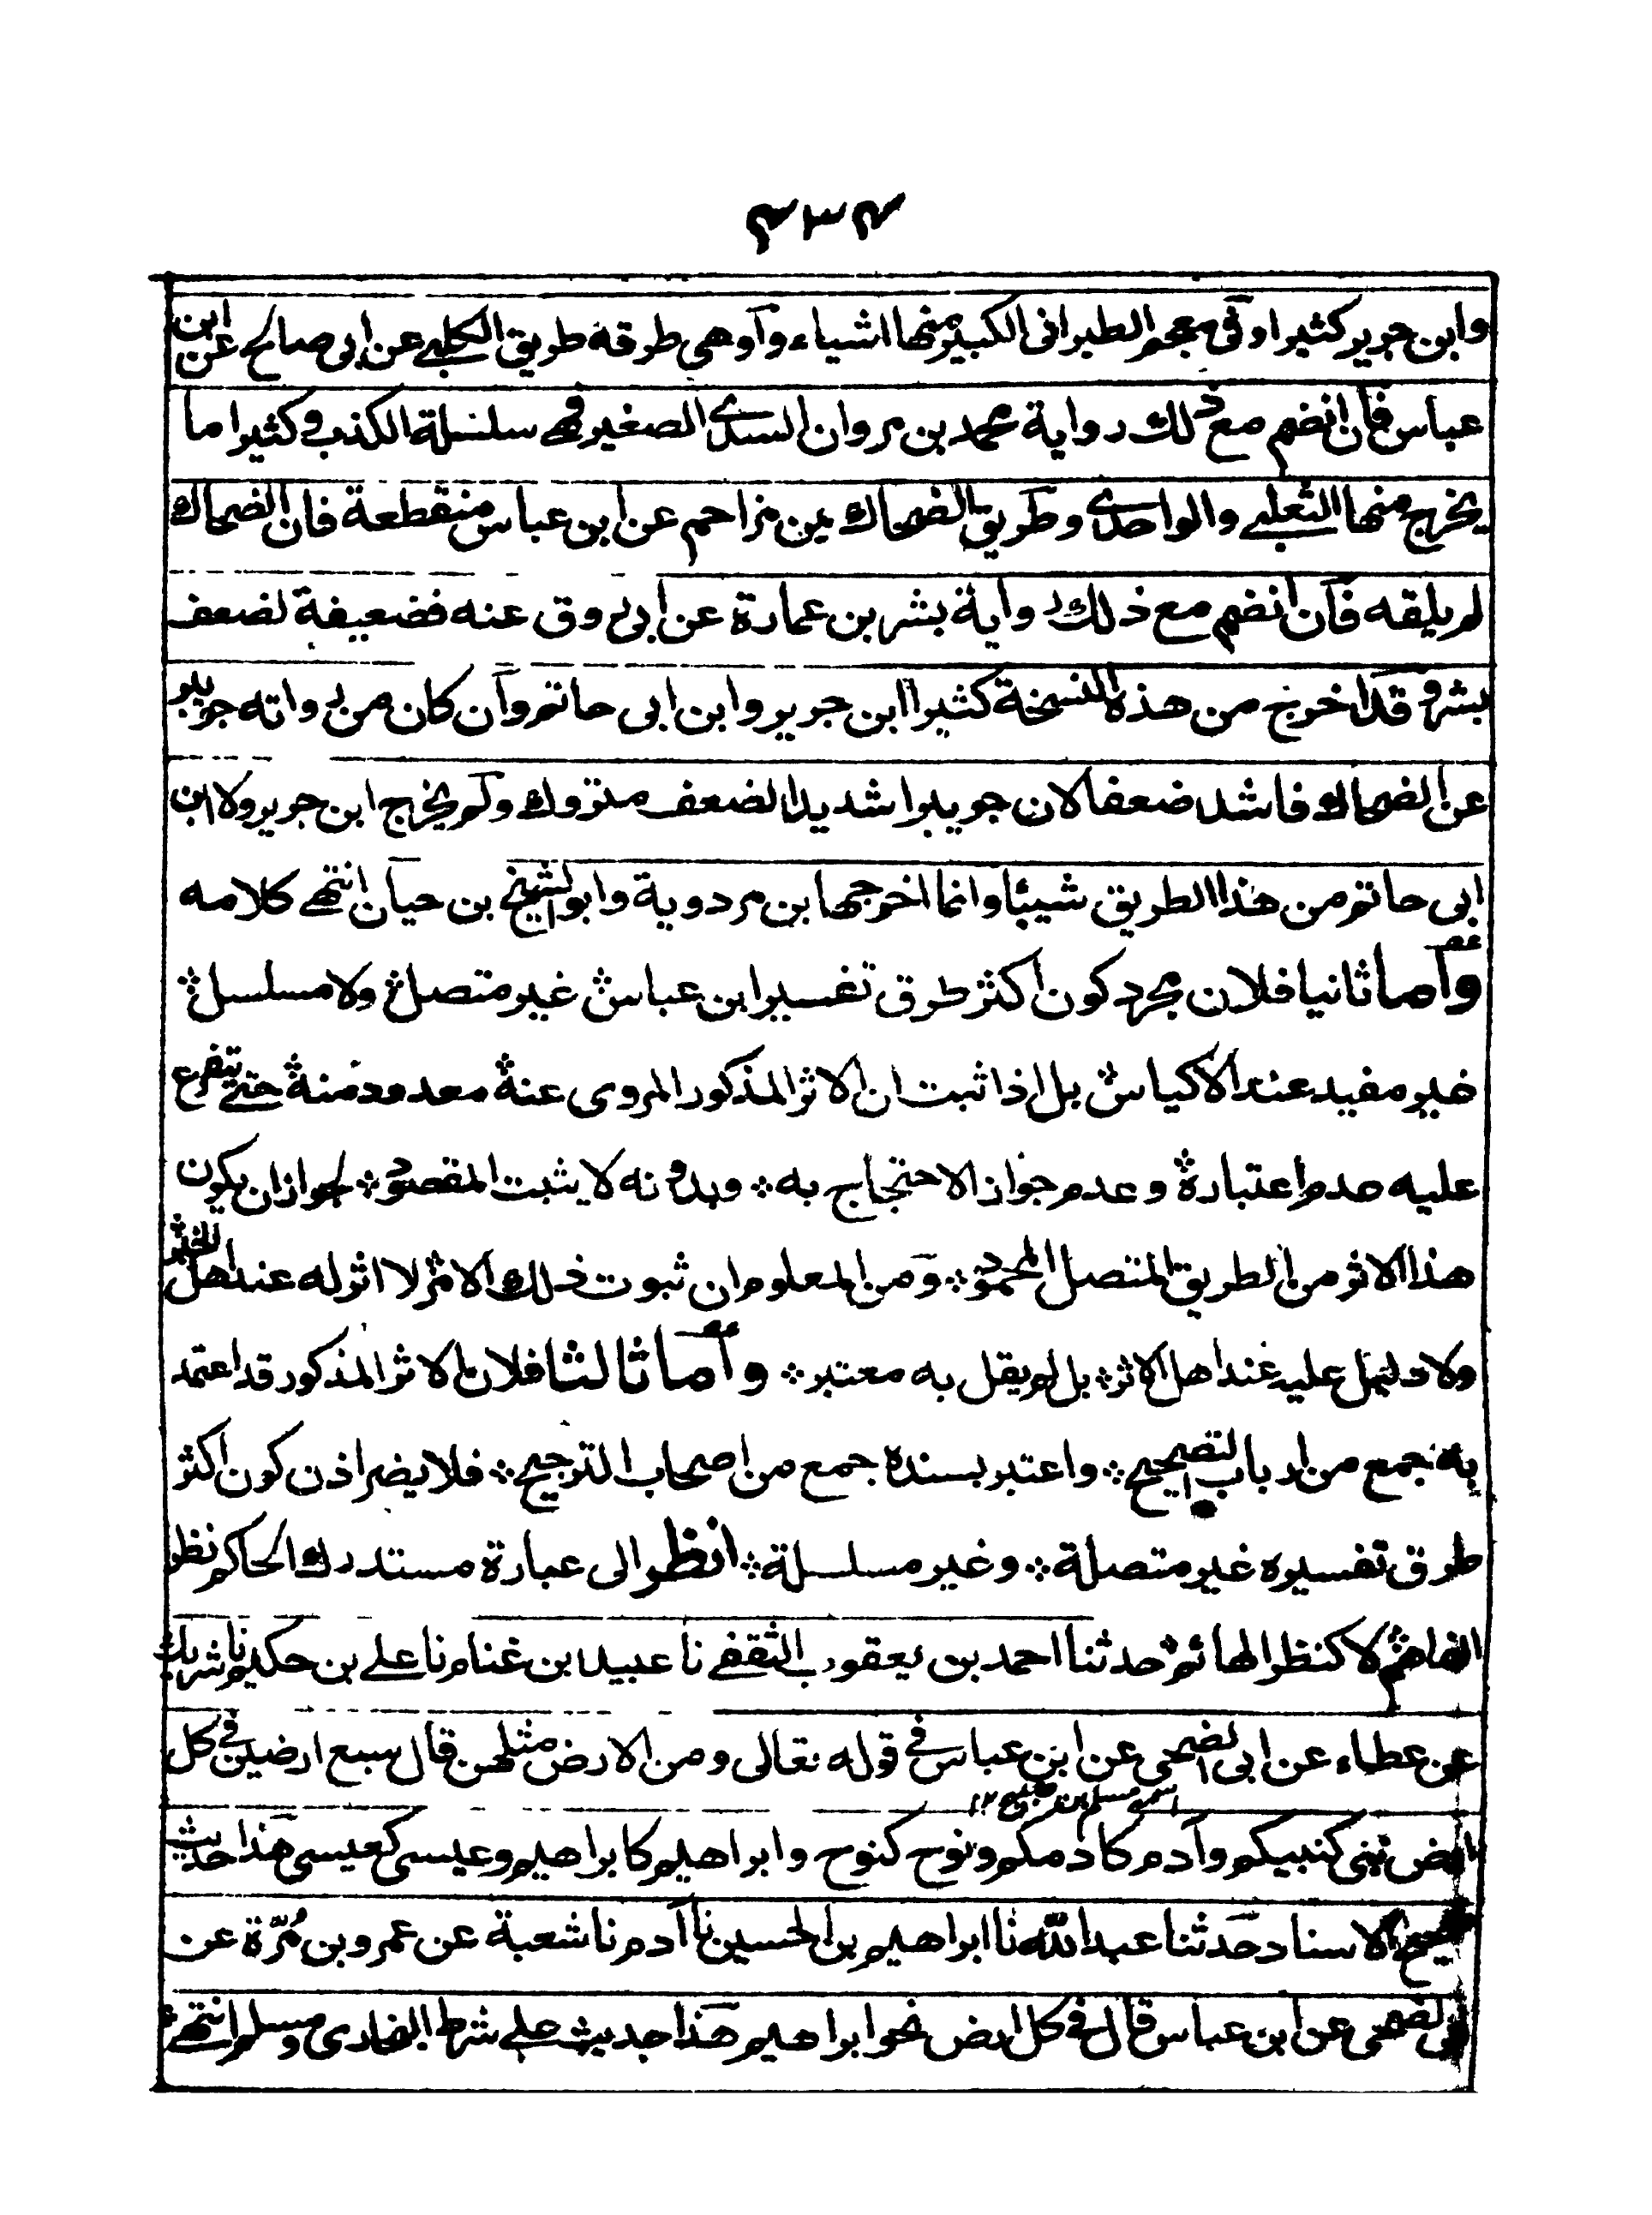 ۴۳۴
وابن جرير كثيرا وفى معجم الطبرانى الكبير منها اشياء وآوهى طرقه طريق الكلبے عن ابى صالح عن ابن
عباس فان انضم مع ذلك رواية محمد بن مروان السدے الصغير فهے سلسلة الكذب وكثيرا ما
يخرج منها الثعلبے والواحدے وطريق الضحاك بن مزاحم عن ابن عباس منقطعة فان الضحاك
لم يلقه فان انضم مع ذلك رواية بشر بن عمارة عن ابى روق عنه فضعيفة لضعف
بشر وقد اخرج من هذه النسخة كثيرا ابن جرير وابن ابى حاتم وآن كان من رواته جويبر
عن الضحاك فاشد ضعفا لان جويبرا شديد الضعف متروك ولم يخرج ابن جرير ولا ابن
ابى حاتم من هذا الطريق شيئا وانما اخرجها بن مردوية وابو الشيخ بن حيان انتهے كلامه
وآما ثانيا فلان مجرد كون اكثر طرق تفسير ابن عباس غير متصل ولا مسلسل
غير مفيد عند الاكياس بل اذا ثبت ان الاثر المذكور المروى عنه معدود منه حتے يتفرع
عليه عدم اعتباره وعدم جواز الاحتجاج به وبدونه لا يثبت المقصود لجواز ان يكون
هذا الاثر من الطريق المتصل المحمود ومن المعلوم ان ثبوت ذلك الامر لا اثر له عند اهل الخبر
ولا دليل عليه عند اهل الاثر بل لم يقل به معتبر وآما ثالثا فلان الاثر المذكور قد اعتمد
به جمع من ارباب التصحيح واعتبر بسنده جمع من اصحاب الترجيح فلا يضر اذن كون اكثر
طرق تفسيره غير متصلة وغير مسلسلة انظر الى عبارة مستدرك الحاكم نظر
الفاهم لا كنظر الهائم حدثنا احمد بن يعقوب الثقفے نا عبيد بن غنام نا علے بن حكيم نا شريك
عن عطاء عن ابى الضحى عن ابن عباس فے قوله تعالى ومن الارض مثلهن قال سبع ارضين فى كل
اسمه مسلم بن صبيح ۱۲
ارض نبى كنبيكم وآدم كادمكم ونوح كنوح وابراهيم كابراهيم وعيسى كعيسى هذا حديث
صحيح الاسناد حدثنا عبد الله نا ابراهيم بن الحسين نا آدم نا شعبة عن عمرو بن مُرّة عن
ابى الضحى عن ابن عباس قال فى كل ارض نحو ابراهيم هذا حديث علے شرط البخارى ومسلم انتهے